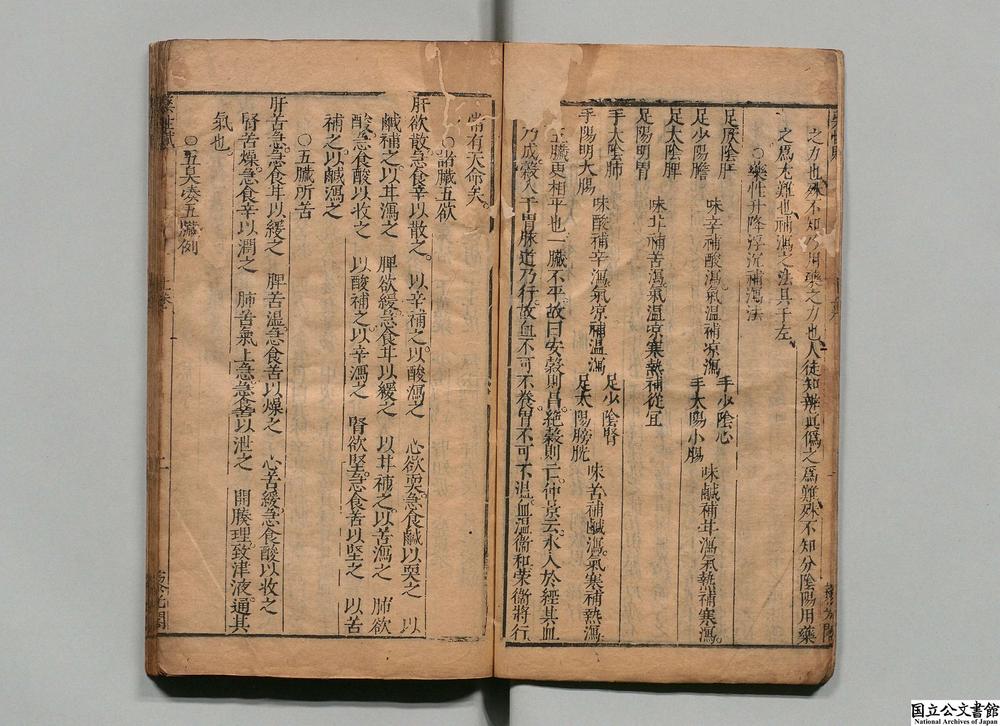 之力也殊不知乃用藥之力也人徒知辨真偽之爲難殊不知分陰陽用藥
之爲尤難也補瀉之法具于左
○藥性升降浮沉補瀉法
足厥陰肝
足少陽膽
味辛補酸瀉氣温補凉瀉
手少陰心
手太陽小腸
味鹹補甘瀉氣熱補寒瀉
足太陰脾
足陽明胃
味甘補苦瀉氣温凉寒熱補從宜
手太陰肺
手陽明大腸
味酸補辛瀉氣凉補温瀉
足少陰腎
足太陽膀胱
味苦補鹹瀉氣寒補熱瀉
五臟更相平也一臟不平故曰安穀則昌絶穀則亡仲景云水入於經其血
乃成穀入于胃脉道乃行故血不可不養胃不可不温血温衞和榮衞將行
常有天命矣
○諸臟五欲
肝欲散急食辛以散之 以辛補之以酸瀉之 心欲耎急食鹹以耎之 以
鹹補之以甘瀉之 脾欲緩急食甘以緩之 以甘補之以苦瀉之 肺欲
酸急食酸以收之 以酸補之以辛瀉之 腎欲堅急食苦以堅之 以苦
補之以鹹瀉之
○五臟所苦
肝苦急急食甘以緩之 脾苦温急食苦以燥之 心苦緩急食酸以收之
腎苦燥急食辛以潤之 肺苦氣上急急食苦以泄之 開腠理致津液通其
氣也
○五臭湊五臟例
藥性賦
上卷
二
国立公文書館
National Archives of Japan